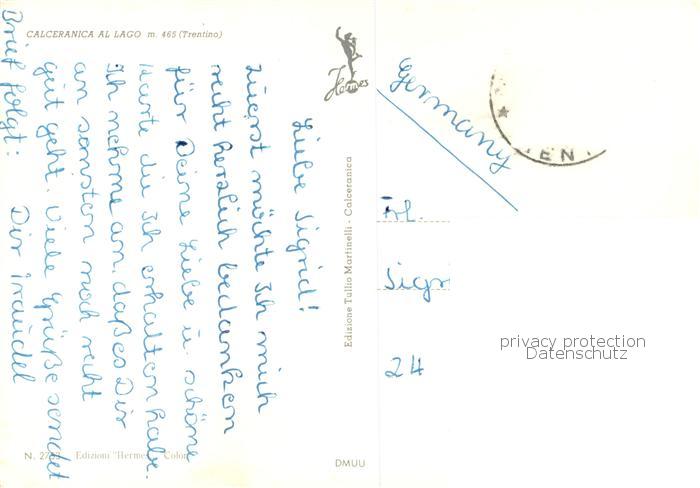 CALCERANICA AL LAGO m. 465 (Trentino)
Hermes
Liebe Sigrid!
Zuerst möchte ich mich
recht herzlich bedanken
für Deine Liebe u. schöne
Karte die ich erhalten habe.
Ich nehme an, daß es Dir
an sonsten noch recht
gut geht. Viele Grüße sendet
Brief folgt: Dir Traudel
Edizione Tullio Martinelli - Calceranica
N. 27 Edizioni "Herme Color
DMUU
Germany
EN
Frl.
Sigr
24
privacy protection
Datenschutz